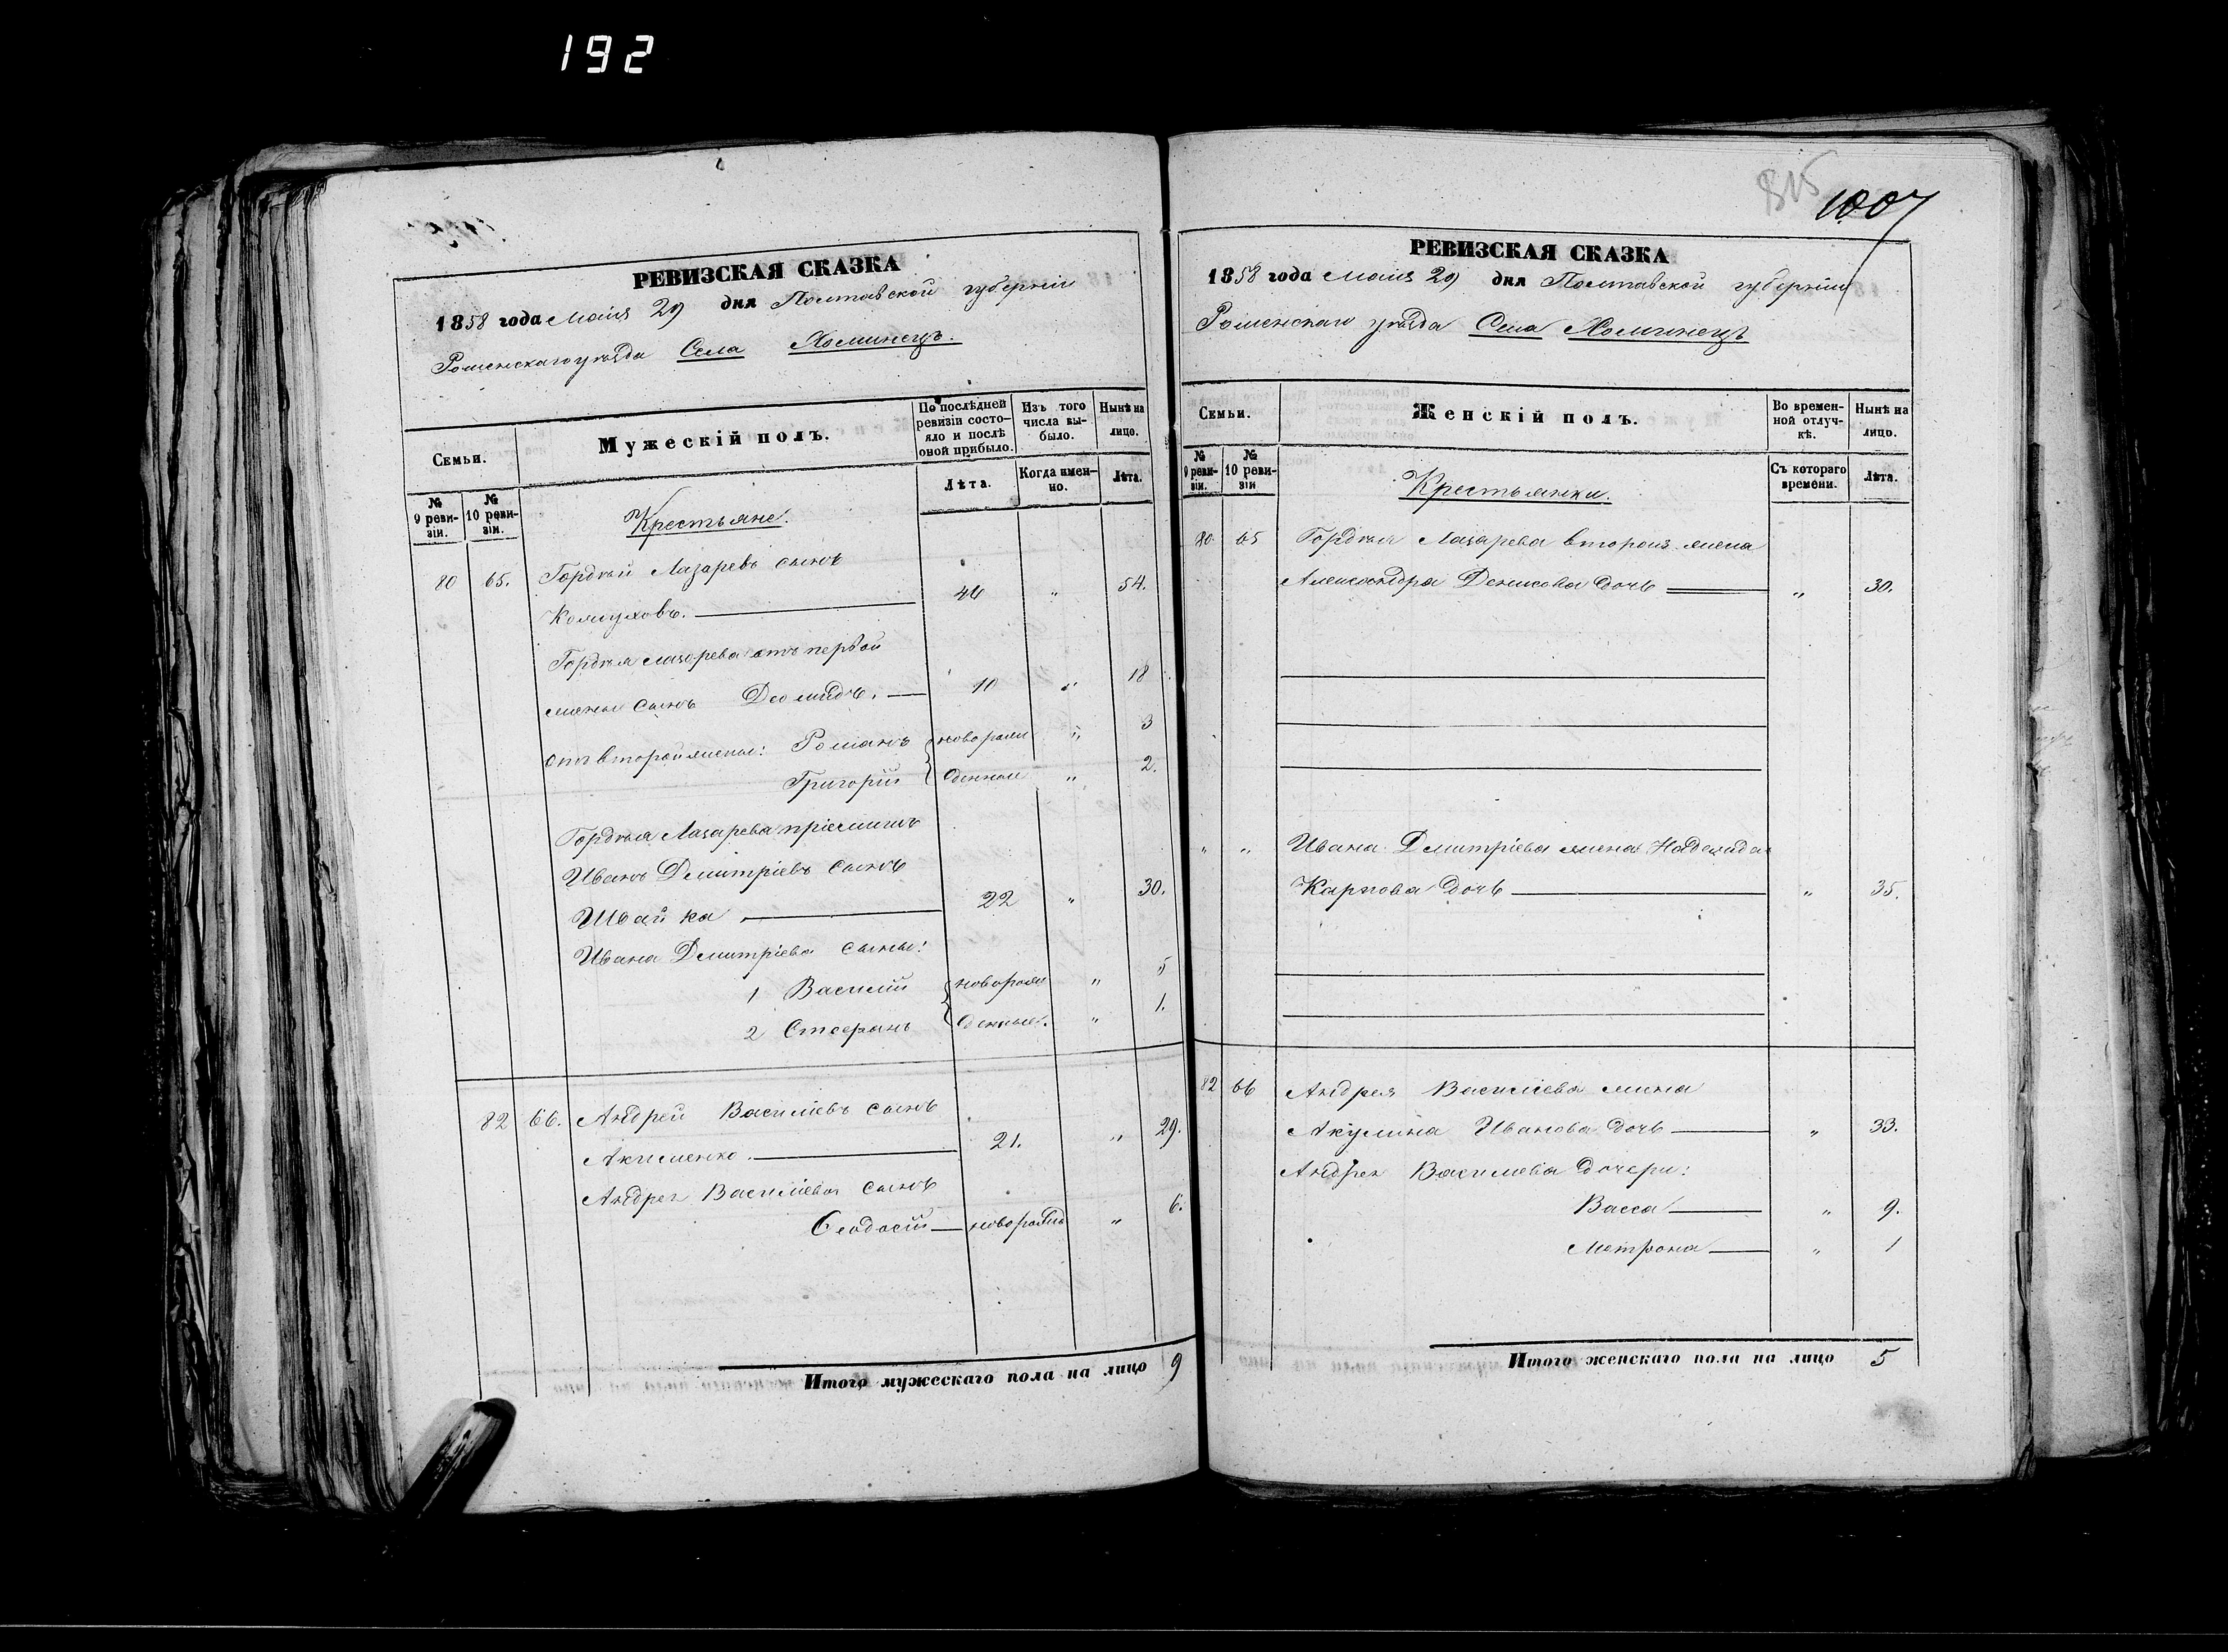 192
РЕВИЗСКАЯ СКАЗКА
1858 года Маія 29 дня Полтавской губерніи
Роменскаго уѣзда Села Хоминецъ.
Семьи.
Мужескій полъ.
По послѣдней ревизіи состояло и послѣ оной прибыло.
Изъ того числа выбыло.
Нынѣ на лицо.
№ 9 ревизіи.
№ 10 ревизіи.
Лѣта.
Когда именно.
Лѣта.
Крестьяне.
80 65. Гордѣй Лазаревъ сынъ
46 " 54.
Гордѣя Лазарева отъ первой
жены сынъ Деомидъ. 10 " 18
отъ второй жены: Романъ новорож " 3
Григорій денные " 2.
Гордѣя Лазарева пріемышъ
Иванъ Дмитріевъ сынъ
Швайка 22 " 30.
Ивана Дмитріева сыны:
1 Василій новорож " 5
2 Стефанъ денные. " 1.
82 66. Андрей Василіевъ сынъ
Акименко. 21. " 29.
Андрея Василіева сынъ
Феодосій новорожд " 6.
Итого мужескаго пола на лицо 9
815
1007
РЕВИЗСКАЯ СКАЗКА
1858 года Маія 29 дня Полтавской губерніи
Роменскаго уѣзда Села Хоминецъ
Семьи.
Женскій полъ.
Во временной отлучкѣ.
Нынѣ на лицо.
№ 9 ревизіи.
№ 10 ревизіи
Съ котораго времени.
Лѣта.
Крестьянки.
80. 65 Гордѣя Лазарева жена
Александра Денисова дочь " 30.
" " Ивана Дмитріева жена Надежда
Карпова дочь " 35.
82 66 Андрея Василіева жена
Акулина Иванова дочь " 33.
Андрея Василіева дочери:
Васса " 9.
Метрона " 1
Итого женскаго пола на лицо 5